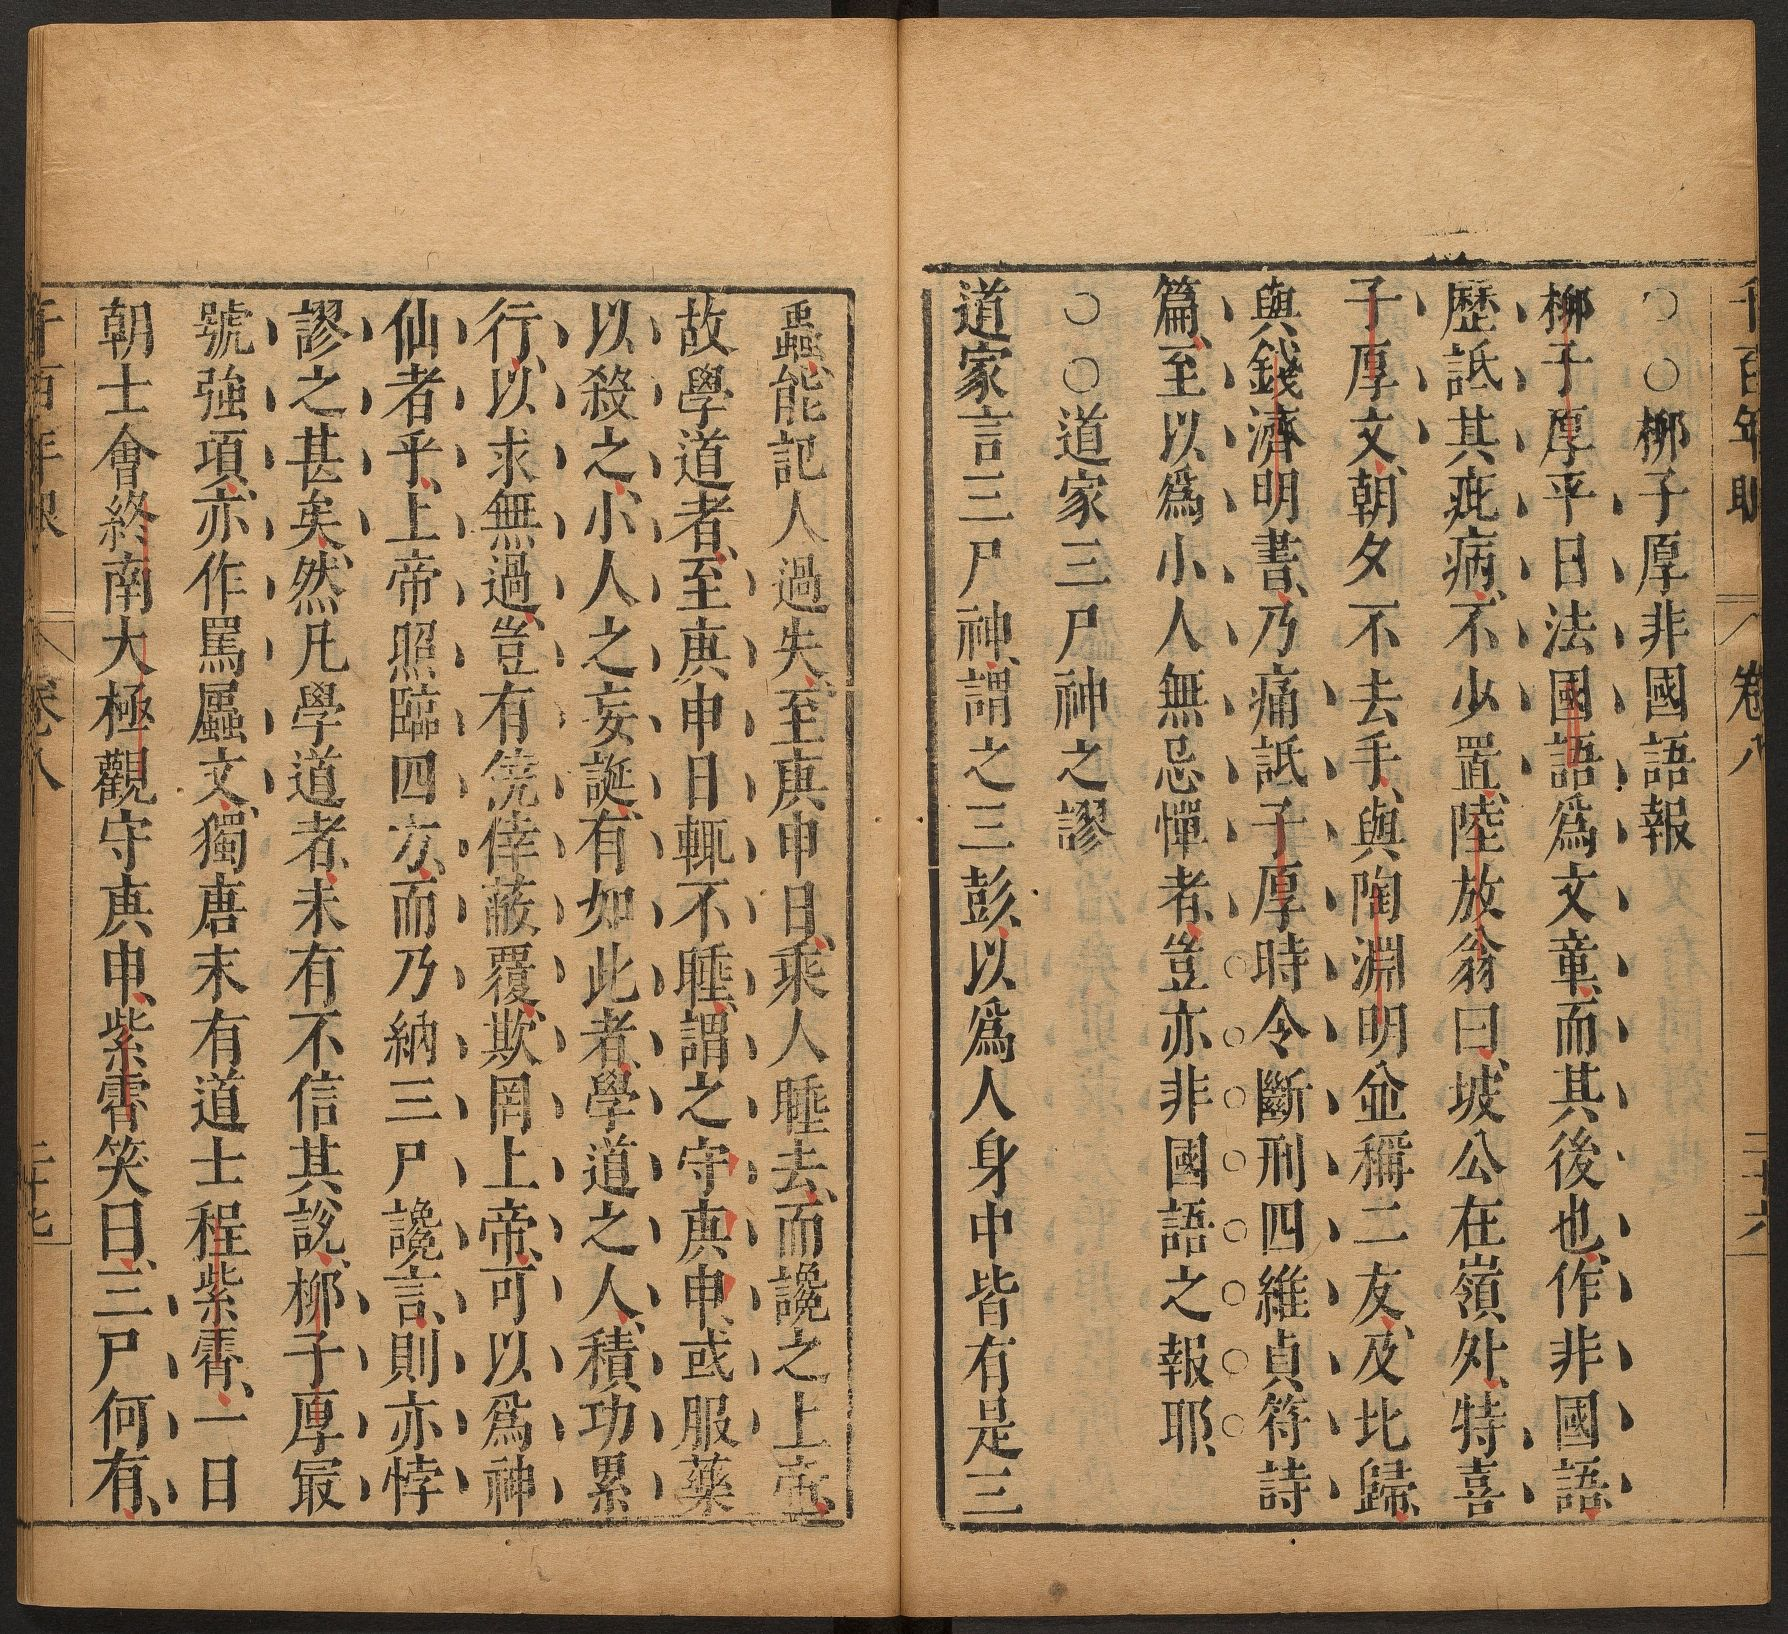 千百年眼 卷八 二十六
○○柳子厚非國語報
柳子厚平日法國語爲文章、而其後也、作非國語、
歷詆其疵病、不少置、陸放翁曰、坡公在嶺外、特喜
子厚文、朝夕不去手、與陶淵明並稱二友、及北歸、
與錢濟明書、乃痛詆子厚時令斷刑四維貞符詩
篇、至以爲小人無忌憚者、豈亦非國語之報耶、
○○道家三尸神之謬
道家言三尸神、謂之三彭、以爲人身中皆有是三
蟲、能記人過失、至庚申日、乘人睡去、而讒之上帝、
故學道者、至庚申日輒不睡、謂之守庚申、或服藥
以殺之、小人之妄誕、有如此者、學道之人、積功累
行、以求無過、豈有僥倖蔽覆、欺罔上帝、可以爲神
仙者乎、上帝照臨四方、而乃納三尸讒言、則亦悖
謬之甚矣、然凡學道者、未有不信其說、柳子厚最
號強項、亦作罵尸蟲文、獨唐末有道士程紫霄、一日
朝士會終南太極觀守庚申、紫霄笑曰、三尸何有、
千百年眼 卷八 二十七